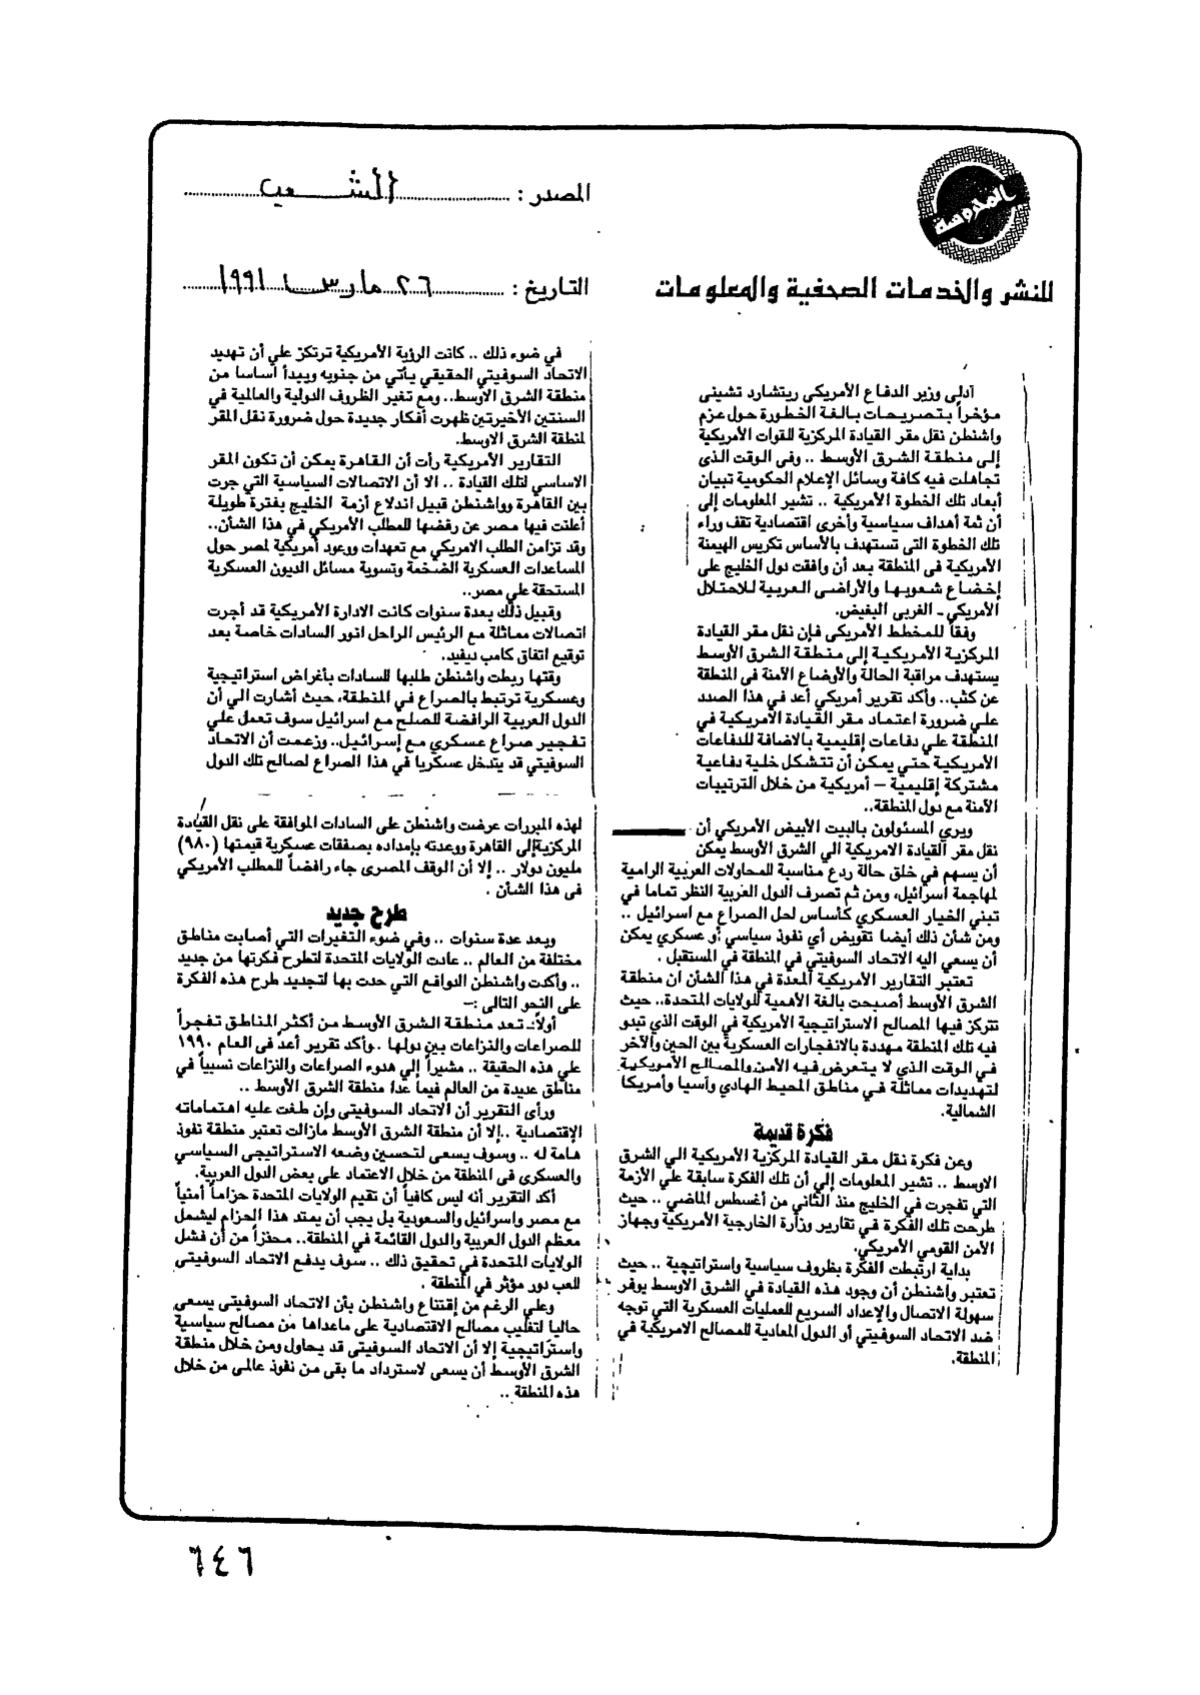 المحروسة
للنشر والخدمات الصحفية والمعلومات
المصدر : الشعب
التاريخ : ٢٦ مارس ١٩٩١
أدلى وزير الدفاع الأمريكى ريتشارد تشينى
مؤخراً بتصريحات بالغة الخطورة حول عزم
واشنطن نقل مقر القيادة المركزية للقوات الأمريكية
إلى منطقة الشرق الأوسط .. وفى الوقت الذى
تجاهلت فيه كافة وسائل الإعلام الحكومية تبيان
أبعاد تلك الخطوة الأمريكية .. تشير المعلومات إلى
أن ثمة أهداف سياسية وأخرى اقتصادية تقف وراء
تلك الخطوة التى تستهدف بالأساس تكريس الهيمنة
الأمريكية فى المنطقة بعد أن وافقت دول الخليج على
إخضاع شعوبها والأراضى العربية للاحتلال
الأمريكي - الغربى البغيض.
وفقاً للمخطط الأمريكى فإن نقل مقر القيادة
المركزية الأمريكية إلى منطقة الشرق الأوسط
يستهدف مراقبة الحالة والأوضاع الآمنة فى المنطقة
عن كثب.. وأكد تقرير أمريكي أعد في هذا الصدد
علي ضرورة اعتماد مقر القيادة الأمريكية في
المنطقة علي دفاعات إقليمية بالاضافة للدفاعات
الأمريكية حتي يمكن أن تتشكل خلية دفاعية
مشتركة إقليمية – أمريكية من خلال الترتيبات
الآمنة مع دول المنطقة..
ويري المسئولون بالبيت الأبيض الأمريكي أن
نقل مقر القيادة الامريكية الي الشرق الأوسط يمكن
أن يسهم في خلق حالة ردع مناسبة للمحاولات العربية الرامية
لمهاجمة اسرائيل، ومن ثم تصرف الدول العربية النظر تماما في
تبني الخيار العسكري كأساس لحل الصراع مع اسرائيل ..
ومن شأن ذلك أيضا تقويض أي نفوذ سياسي أو عسكري يمكن
أن يسعي اليه الاتحاد السوفيتي في المنطقة في المستقبل .
تعتبر التقارير الأمريكية المعدة في هذا الشأن ان منطقة
الشرق الأوسط أصبحت بالغة الأهمية للولايات المتحدة.. حيث
تتركز فيها المصالح الاستراتيجية الأمريكية في الوقت الذي تبدو
فيه تلك المنطقة مهددة بالانفجارات العسكرية بين الحين والآخر
في الوقت الذي لا يتعرض فيه الأمن والمصالح الأمريكية
لتهديدات مماثلة في مناطق المحيط الهادي وآسيا وأمريكا
الشمالية.
فكرة قديمة
وعن فكرة نقل مقر القيادة المركزية الأمريكية الي الشرق
الاوسط .. تشير المعلومات إلي أن تلك الفكرة سابقة علي الأزمة
التي تفجرت في الخليج منذ الثاني من أغسطس الماضي .. حيث
طرحت تلك الفكرة في تقارير وزارة الخارجية الأمريكية وجهاز
الأمن القومي الأمريكي.
بداية ارتبطت الفكرة بظروف سياسية واستراتيجية .. حيث
تعتبر واشنطن أن وجود هذه القيادة في الشرق الاوسط يوفر
سهولة الاتصال والإعداد السريع للعمليات العسكرية التي توجه
ضد الاتحاد السوفيتي أو الدول المعادية للمصالح الامريكية في
المنطقة.
في ضوء ذلك .. كانت الرؤية الأمريكية ترتكز علي أن تهديد
الاتحاد السوفيتي الحقيقي يأتي من جنوبه ويبدأ أساسا من
منطقة الشرق الأوسط.. ومع تغير الظروف الدولية والعالمية في
السنتين الأخيرتين ظهرت أفكار جديدة حول ضرورة نقل المقر
لمنطقة الشرق الاوسط.
التقارير الأمريكية رأت أن القاهرة يمكن أن تكون المقر
الاساسي لتلك القيادة .. الا أن الاتصالات السياسية التي جرت
بين القاهرة وواشنطن قبيل اندلاع أزمة الخليج بفترة طويلة
أعلنت فيها مصر عن رفضها للمطلب الأمريكي في هذا الشأن..
وقد تزامن الطلب الامريكي مع تعهدات ووعود أمريكية لمصر حول
المساعدات العسكرية الضخمة وتسوية مسائل الديون العسكرية
المستحقة علي مصر..
وقبيل ذلك بعدة سنوات كانت الادارة الأمريكية قد أجرت
اتصالات مماثلة مع الرئيس الراحل انور السادات خاصة بعد
توقيع اتفاق كامب ديفيد.
وقتها ربطت واشنطن طلبها للسادات بأغراض استراتيجية
وعسكرية ترتبط بالصراع في المنطقة، حيث أشارت الي أن
الدول العربية الرافضة للصلح مع اسرائيل سوف تعمل علي
تفجير صراع عسكري مع إسرائيل.. وزعمت أن الاتحاد
السوفيتي قد يتدخل عسكريا في هذا الصراع لصالح تلك الدول
لهذه المبررات عرضت واشنطن على السادات الموافقة على نقل القيادة
المركزية إلى القاهرة ووعدته بإمداده بصفقات عسكرية قيمتها (٩٨٠)
مليون دولار .. إلا أن الوقف المصرى جاء رافضاً للمطلب الأمريكي
فى هذا الشأن .
طرح جديد
وبعد عدة سنوات .. وفي ضوء التغيرات التي أصابت مناطق
مختلفة من العالم .. عادت الولايات المتحدة لتطرح فكرتها من جديد
.. وأكدت واشنطن الدوافع التي حدت بها لتجديد طرح هذه الفكرة
على النحو التالى :–
أولاً:ـ تعد منطقة الشرق الأوسط من أكثر المناطق تفجراً
للصراعات والنزاعات بين دولها ..وأكد تقرير أعد فى العام ١٩٩٠
علي هذه الحقيقة .. مشيراً إلي هدوء الصراعات والنزاعات نسبياً في
مناطق عديدة من العالم فيما عدا منطقة الشرق الأوسط ..
ورأى التقرير أن الاتحاد السوفيتى وإن طغت عليه اهتماماته
الإقتصادية ..إلا أن منطقة الشرق الأوسط مازالت تعتبر منطقة نفوذ
هامة له .. وسوف يسعى لتحسين وضعه الاستراتيجى السياسي
والعسكرى فى المنطقة من خلال الاعتماد على بعض الدول العربية.
أكد التقرير أنه ليس كافياً أن تقيم الولايات المتحدة حزاماً أمنياً
مع مصر واسرائيل والسعودية بل يجب أن يمتد هذا الحزام ليشمل
معظم الدول العربية والدول القائمة في المنطقة.. محذراً من أن فشل
الولايات المتحدة في تحقيق ذلك .. سوف يدفع الاتحاد السوفيتى
للعب دور مؤثر في المنطقة .
وعلي الرغم من إقتناع واشنطن بأن الاتحاد السوفيتى يسعى
حالياً لتغليب مصالح الاقتصادية على ماعداها من مصالح سياسية
واستراتيجية إلا أن الاتحاد السوفيتى قد يحاول ومن خلال منطقة
الشرق الأوسط أن يسعى لاسترداد ما بقى من نفوذ عالمى من خلال
هذه المنطقة ..
٦٤٦